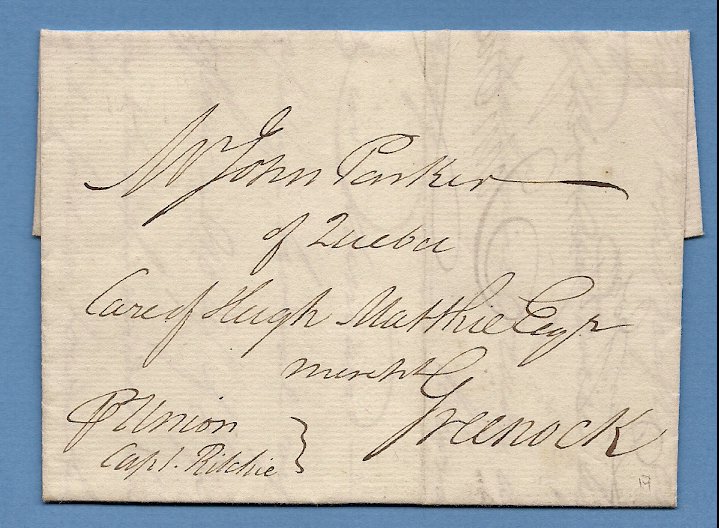 Mr John Parker
of Quebec
Care of Hugh Matthie Esqr
mercht
Greenock
P Union
Capt. Ritchie
19